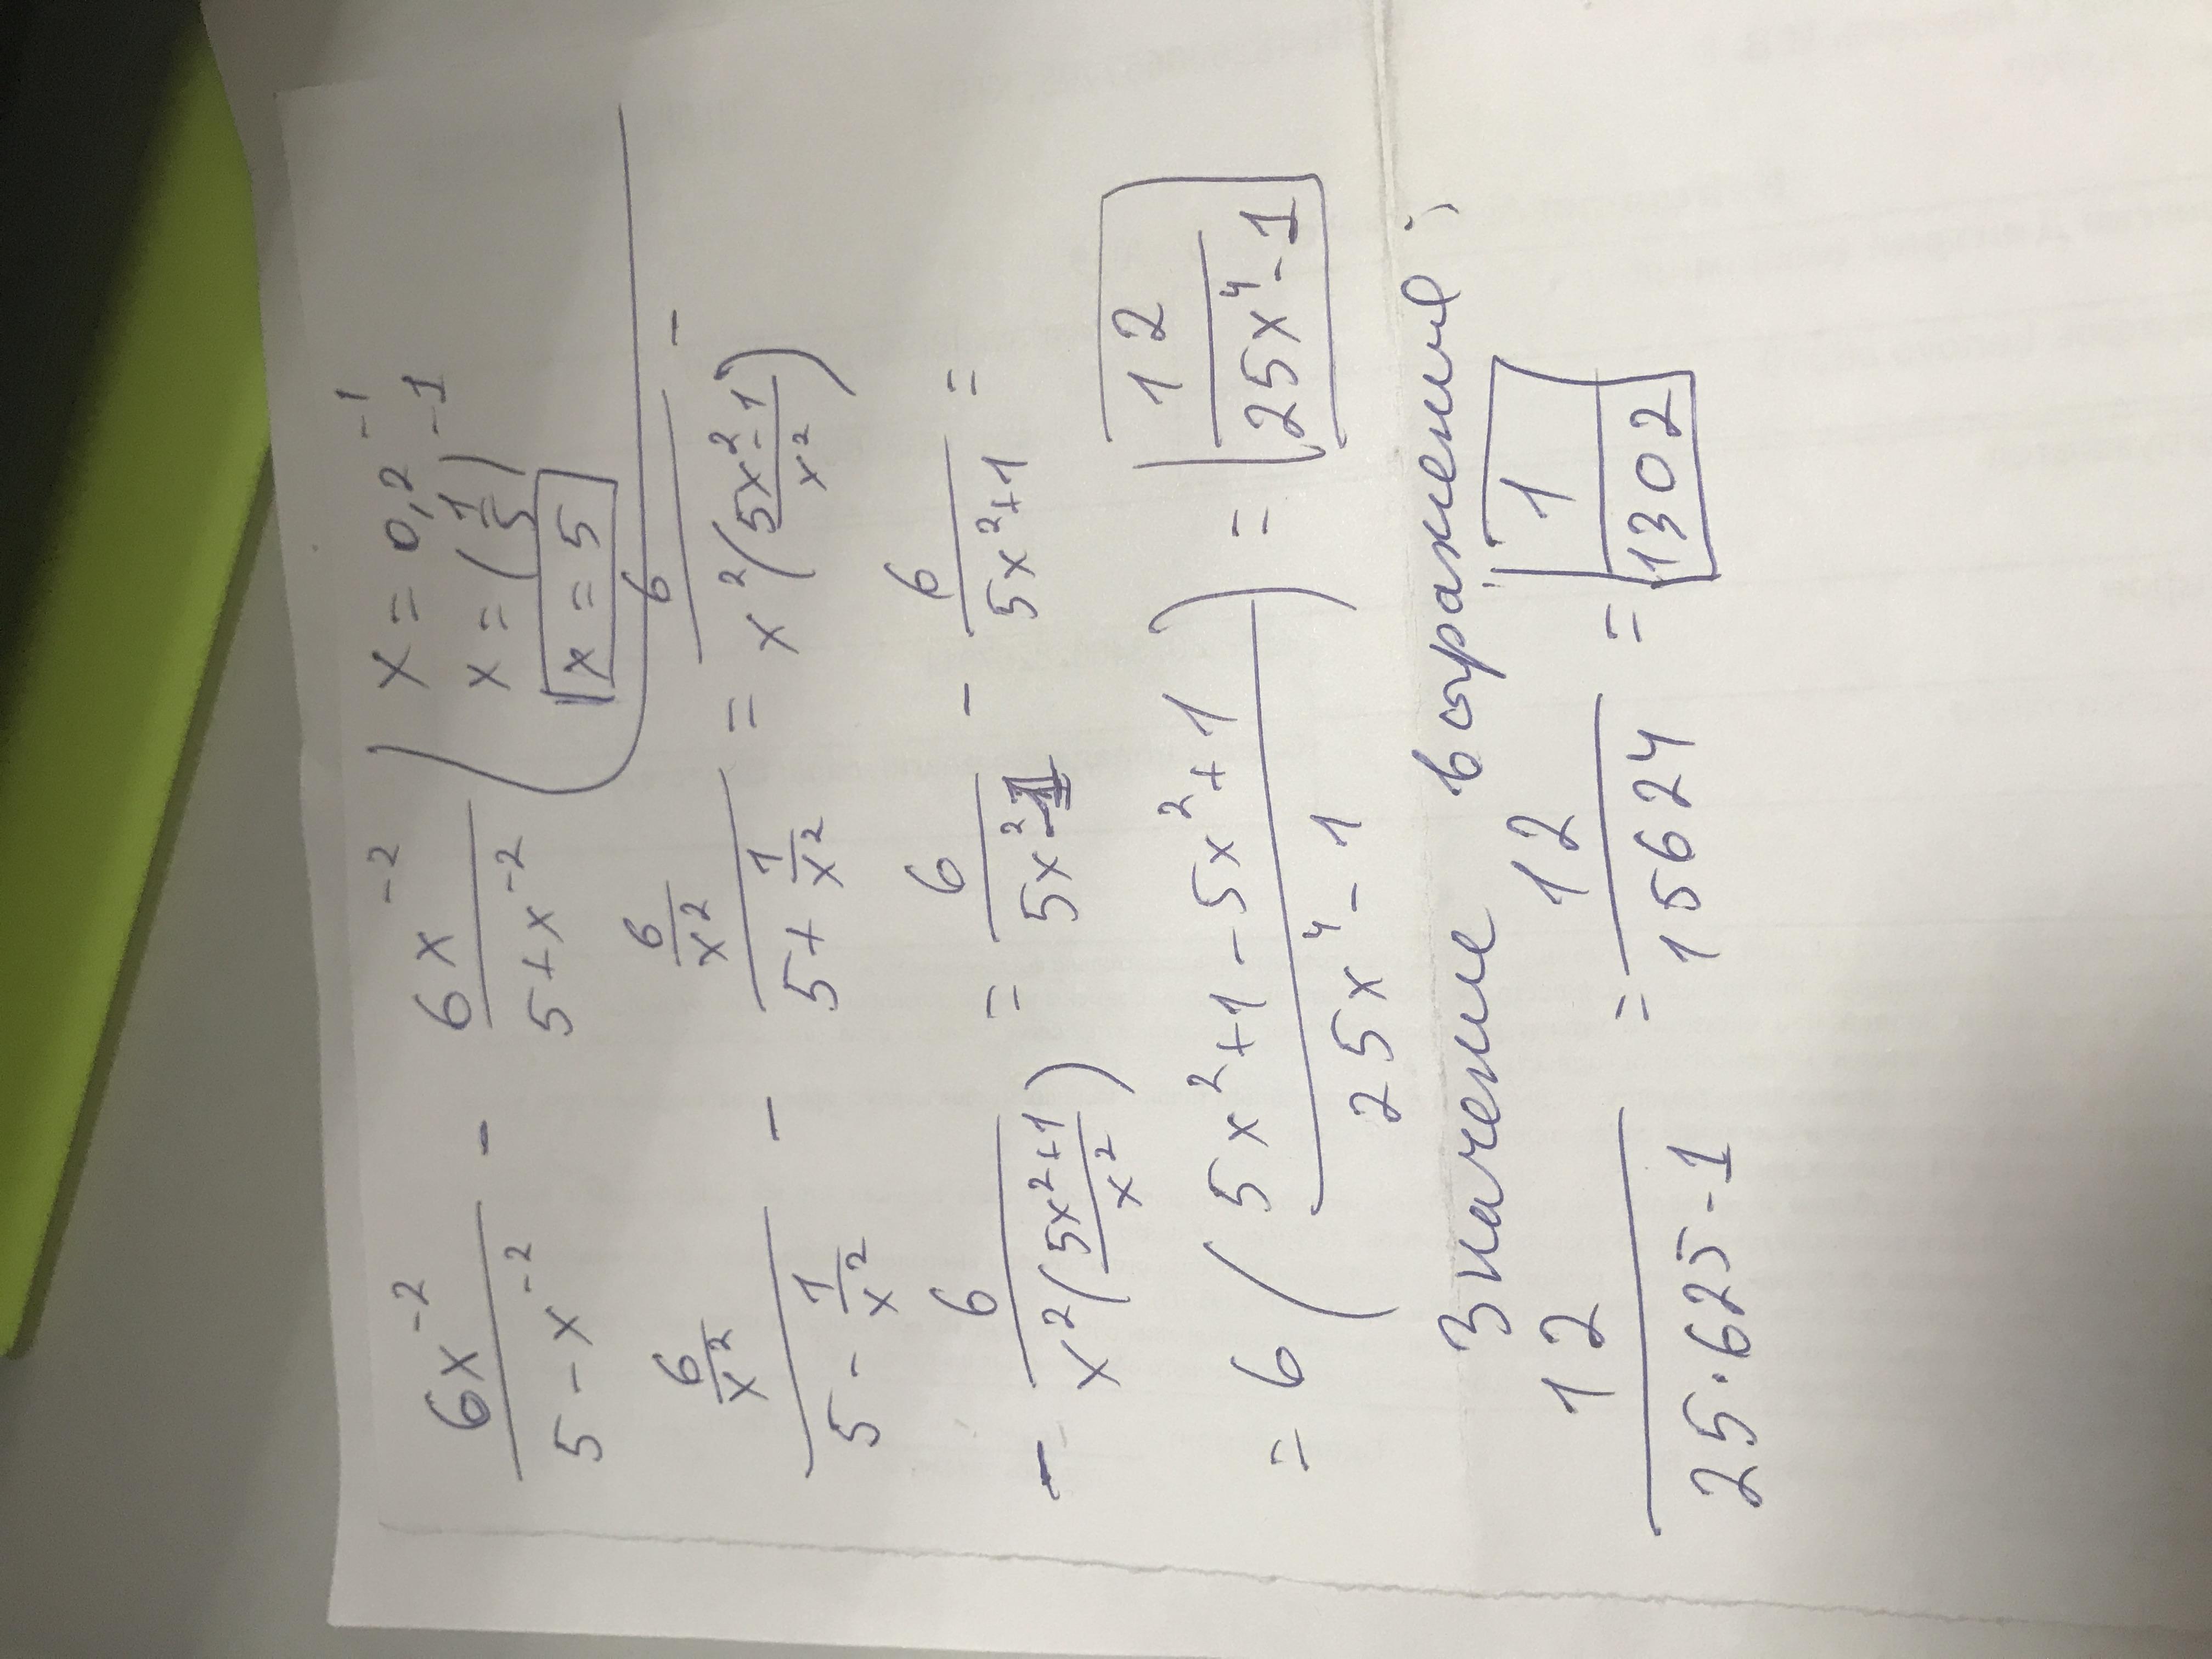 6x⁻² / (5 - x⁻²) - 6x⁻² / (5 + x⁻²)
x = 0,2⁻¹
x = (1/5)⁻¹
x = 5
(6/x²) / (5 - 1/x²) - (6/x²) / (5 + 1/x²) = 6 / (x²((5x² - 1)/x²)) -
- 6 / (x²((5x² + 1)/x²)) = 6 / (5x² - 1) - 6 / (5x² + 1) =
= 6 ((5x² + 1 - 5x² + 1) / (25x⁴ - 1)) = 12 / (25x⁴ - 1)
Значение выражения:
12 / (25·625 - 1) = 12 / 15624 = 1 / 1302